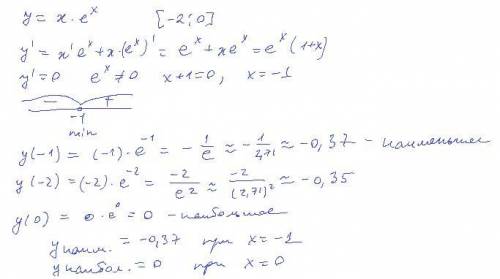 y = x · eˣ [-2; 0]
y' = x'eˣ + x·(eˣ)' = eˣ + xeˣ = eˣ(1+x)
y' = 0 eˣ ≠ 0 x+1=0, x=-1
- +
-1
min
y(-1) = (-1)·e⁻¹ = -1/e ≈ -1/2,71 ≈ -0,37 - наименьшее
y(-2) = (-2)·e⁻² = -2/e² ≈ -2/(2,71)² ≈ -0,35
y(0) = 0·e⁰ = 0 - наибольшое
y наим. = -0,37 при x = -1
y наибол. = 0 при x = 0